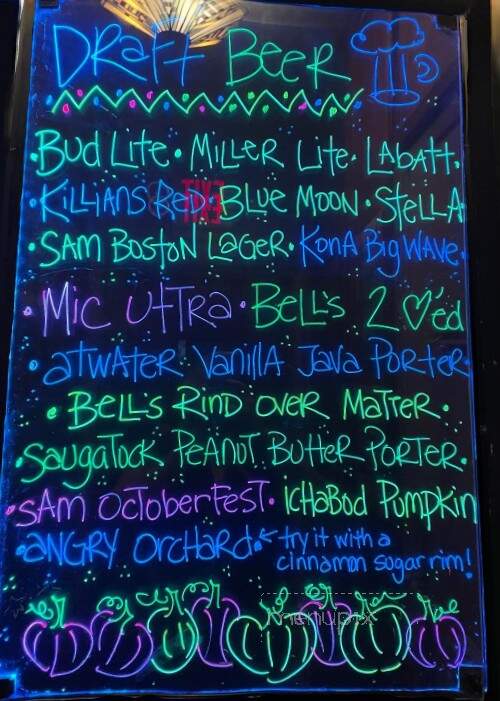 Draft Beer
• Bud Lite • Miller Lite • Labatt •
• Killians Red • Blue Moon • Stella
• Sam Boston Lager • Kona Big Wave •
• Mic Ultra • Bell's 2 ♡'ed
• Atwater Vanilla Java Porter •
• Bell's Rind over Matter •
Saugatuck Peanut Butter Porter •
• Sam Octoberfest • Ichabod Pumpkin
• Angry Orchard • ← try it with a
cinnamon sugar rim!
menupix